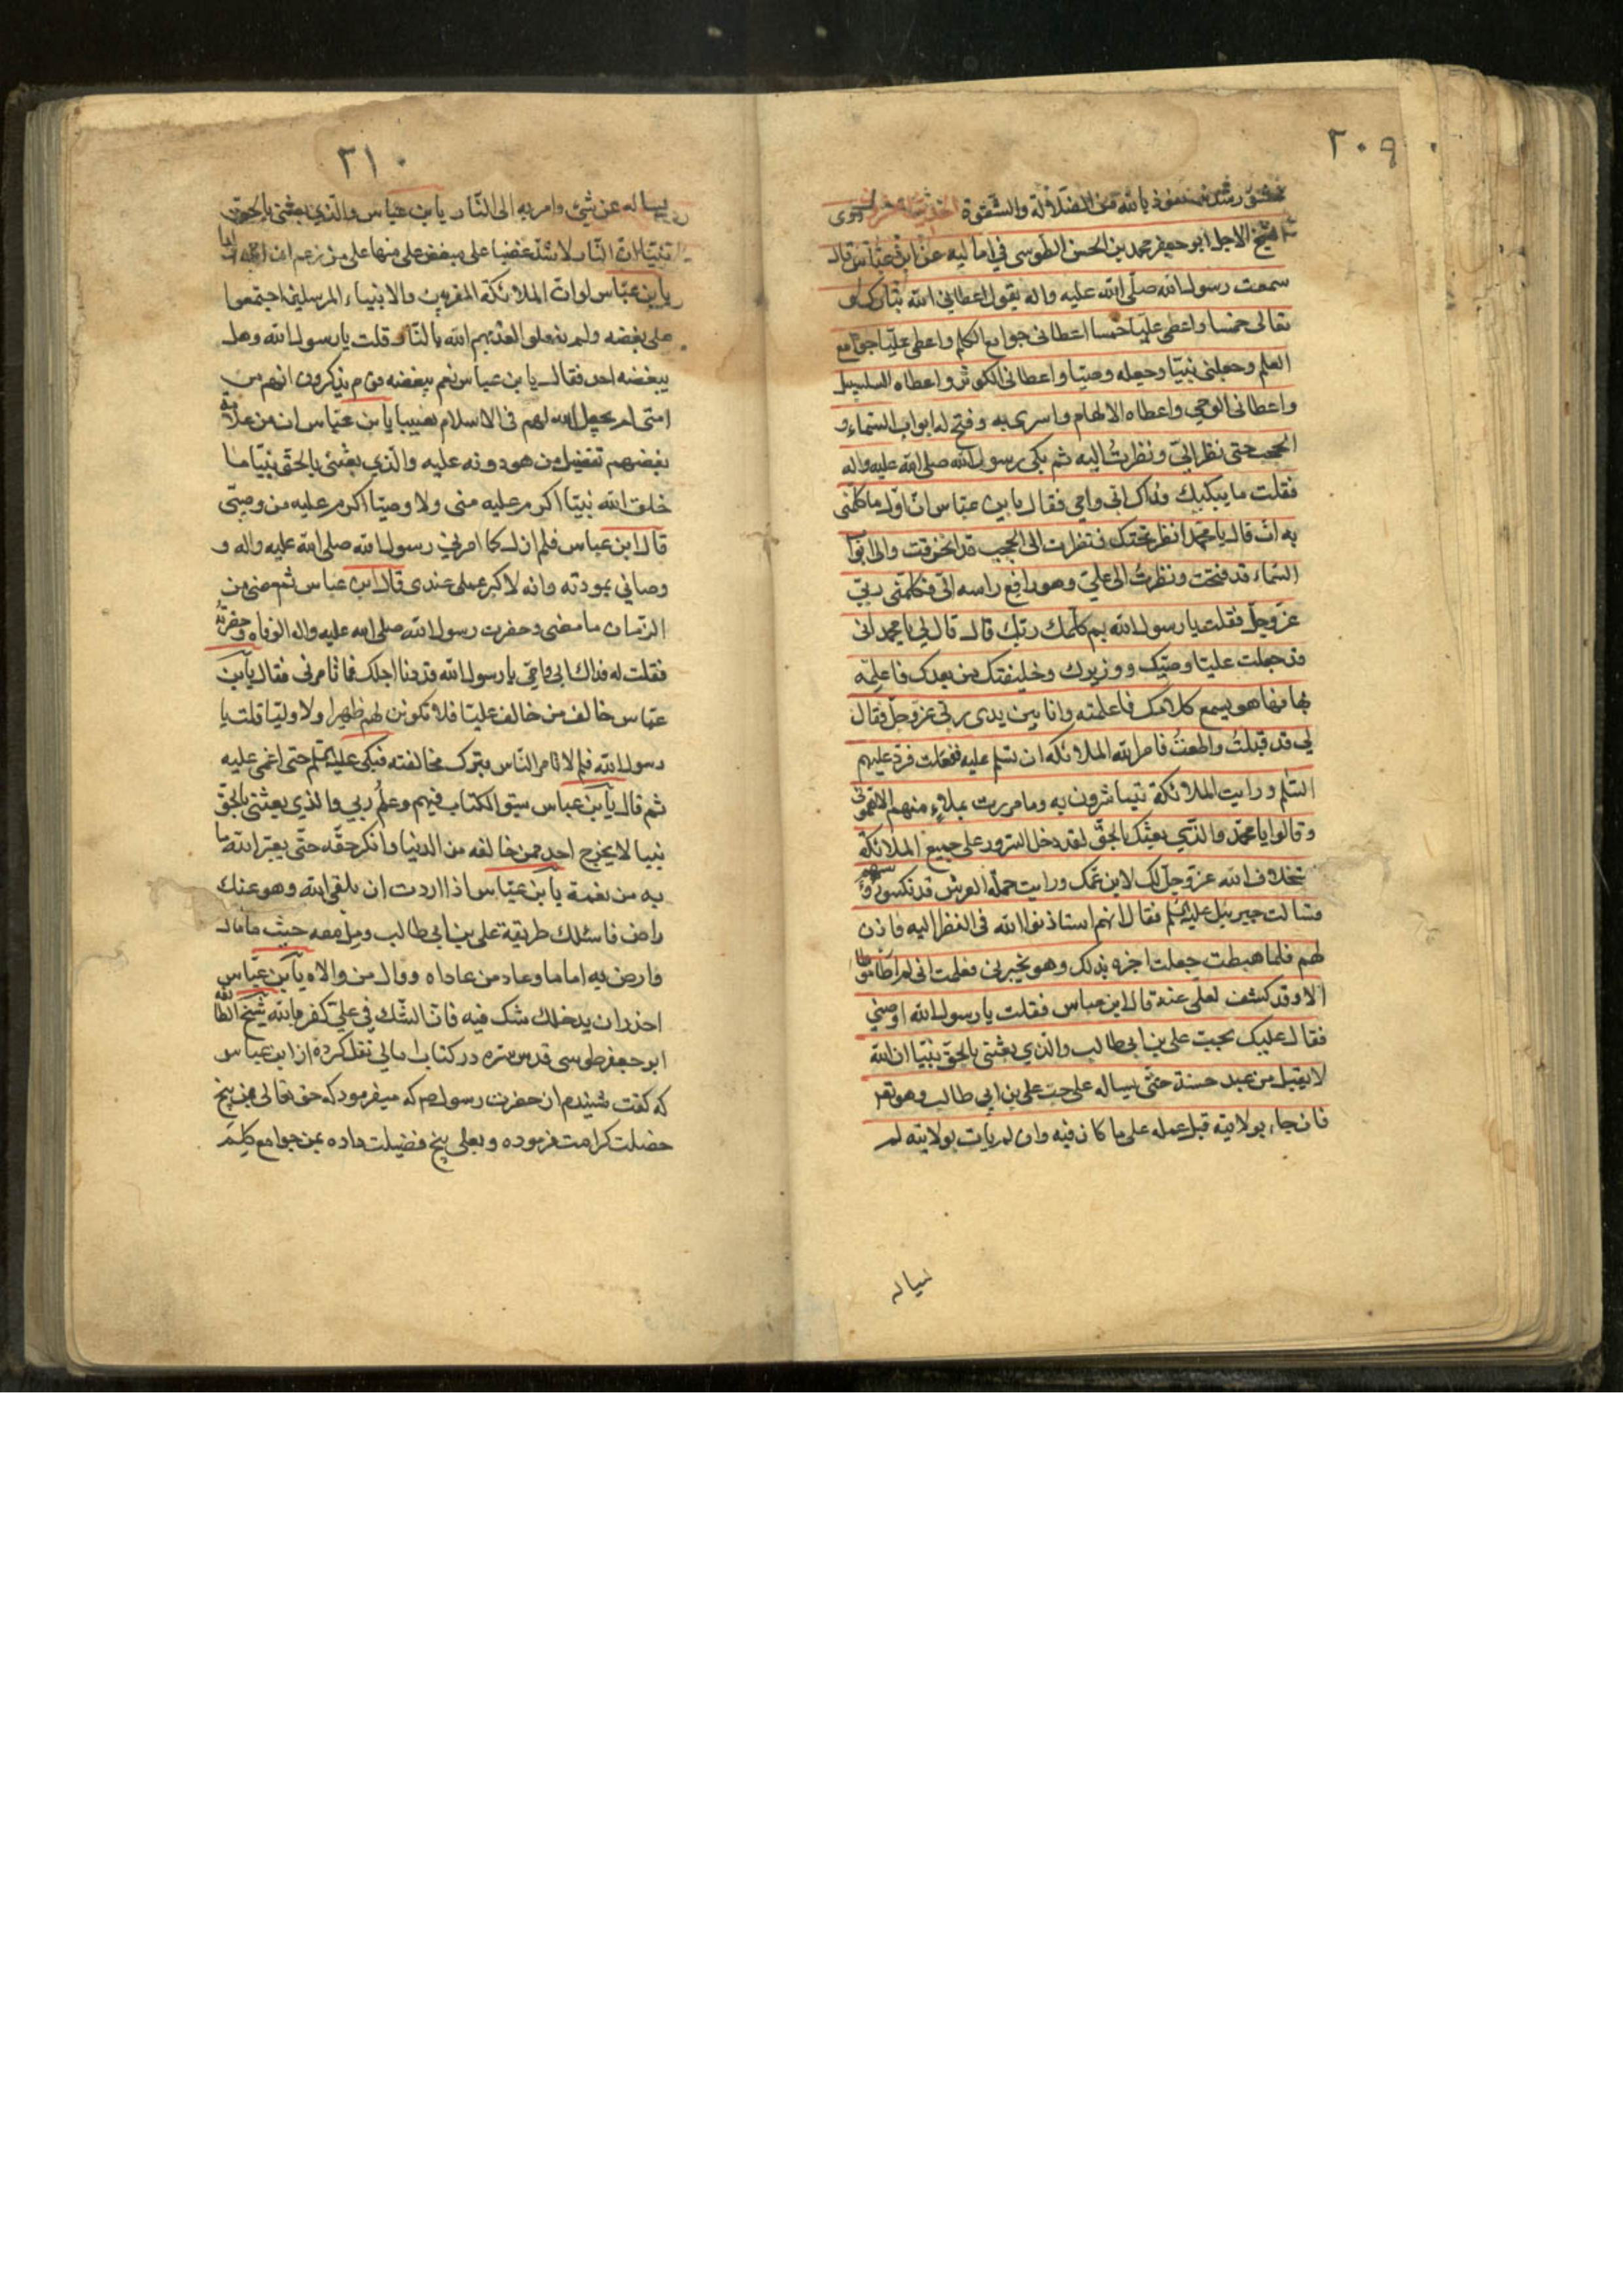 ٢٠٩
نعوذ بالله من الضلالة والشقوة روى
الشيخ الاجل ابو جعفر محمد بن الحسن الطوسى في اماليه عن ابن عباس قال
سمعت رسول الله صلى الله عليه واله يقول اعطانى الله تبارك و
تعالى خمسا واعطى عليا خمسا اعطانى جوامع الكلم واعطى عليا جوامع
العلم وجعلنى نبيا وجعله وصيا واعطانى الكوثر واعطاه السلسبيل
واعطانى الوحي واعطاه الالهام واسرى به وفتح له ابواب السماء و
الحجب حتى نظر الىّ ونظرتُ اليه ثم بكى رسول الله صلى الله عليه واله
فقلت ما يبكيك فداك ابى وامى فقال يابن عباس انّ اوّل ما كلّمنى
به ان قال يا محمد انظر تحتك فنظرت الى الحجب قد انخرقت والى ابواب
السّماء قد فتحت ونظرتُ الى علىّ وهو رافع راسه الىّ فكلّمنى ربّى
عزّ وجلّ فقلت يا رسول الله بم كلّمك ربّك قال قال لي يا محمد انى
قد جعلت عليّا وصيّك ووزيرك وخليفتك من بعدك فاعلمه
بها فها هو يسمع كلامك فاعلمته وانا بين يدى ربّى عزّ وجلّ فقال
لي قد قبلتُ واطعتُ فامر الله الملائكه ان تسلم عليه ففعلت فردّ عليهم
السّلم ورايت الملائكة يتباشرون به وما مررت بملاءٍ منهم الا هنّونى
وقالوا يا محمّد والذّي بعثك بالحقّ لقد دخل السّرور على جميع الملائكة
بخلاف الله عزّ وجلّ لك لابن عمّك ورايت حملة العرش قد نكسوا رؤسهم
فسالت جبرئيل عليه السّلم فقال انهم استاذنوا الله فى النظر اليه فاذن
لهم فلما هبطت جعلت اخبره بذلك وهو يخبرنى فعلمت انى لم اطأ موطا
الا وقد كشف لعلى عنه قال ابن عباس فقلت يا رسول الله اوصنى
فقال عليك بحبّ على بن ابى طالب والذي بعثنى بالحق نبيا ان الله
لا يقبل من عبد حسنة حتّى يساله على حبّ على بن ابي طالب وهو تعم
فان جاء بولايته قبل عمله على ما كان فيه وان لم يات بولايته لم
يساله
٢١٠
يساله عن شئ وامر به الى النّار يابن عباس والّذي بعثنى بالحق
نبيّا انّ النّار لاشدّ غضبا على مبغض على منها على من زعم ان لله ولدا
يابن عبّاس لو انّ الملائكة المقربين والانبياء المرسلين اجتمعوا
على بغضه ولم يفعلو لعذّبهم الله بالنّار قلت يا رسول الله وهل
يبغضه احد فقال يابن عباس نعم يبغضه قوم يذكرون انهم من
امتى لم يجعل الله لهم فى الاسلام نصيبا يابن عبّاس ان من علامة
بغضهم تفضيل من هو دونه عليه والذي بعثنى بالحقّ نبيّا ما
خلق الله نبيّا اكرم عليه منى ولا وصيّا اكرم عليه من وصيّى
قال ابن عباس فلم ازل كما امرنى رسول الله صلى الله عليه واله و
وصانى بمودته وانه لاكبر عملى عندى قال ابن عباس ثم مضى من
الزّمان ما مضى وحضرت رسول الله صلى الله عليه واله الوفاه وحضرته
فقلت له فداك ابى وامّى يا رسول الله قد دنا اجلك فما تامرنى فقال يابن
عبّاس خالف من خالف عليّا فلا تكونن لهم ظهيرا ولا وليّا قلت يا
رسول الله فلم لا تامر النّاس بترك مخالفته فبكى عليه السّلم حتى اغمى عليه
ثم قال يابن عباس سبق الكتاب فيهم وعلم ربي والذي بعثنى بالحق
نبيا لا يخرج احد ممن خالفه من الدنيا وانكر حقّه حتّى يغير الله ما
به من نعمة يابن عبّاس اذا اردت ان تلقى الله وهو عنك
راض فاسلك طريقة على بن ابى طالب ومل معه حيث ما مال
وارض به اماما وعاد من عاداه ووال من والاه يابن عبّاس
احذر ان يدخلك شك فيه فانّ الشّك فى على كفر بالله شيخ الطائفه
ابو جعفر طوسى قدس سره در كتاب امالى نقل كرده از ابن عباس
كه كفت شنيدم از حضرت رسول ص كه ميفرمود كه حق تعالى بمن پنج
خصلت كرامت فرموده وبعلى پنج فضيلت داده بمن جوامع كلم